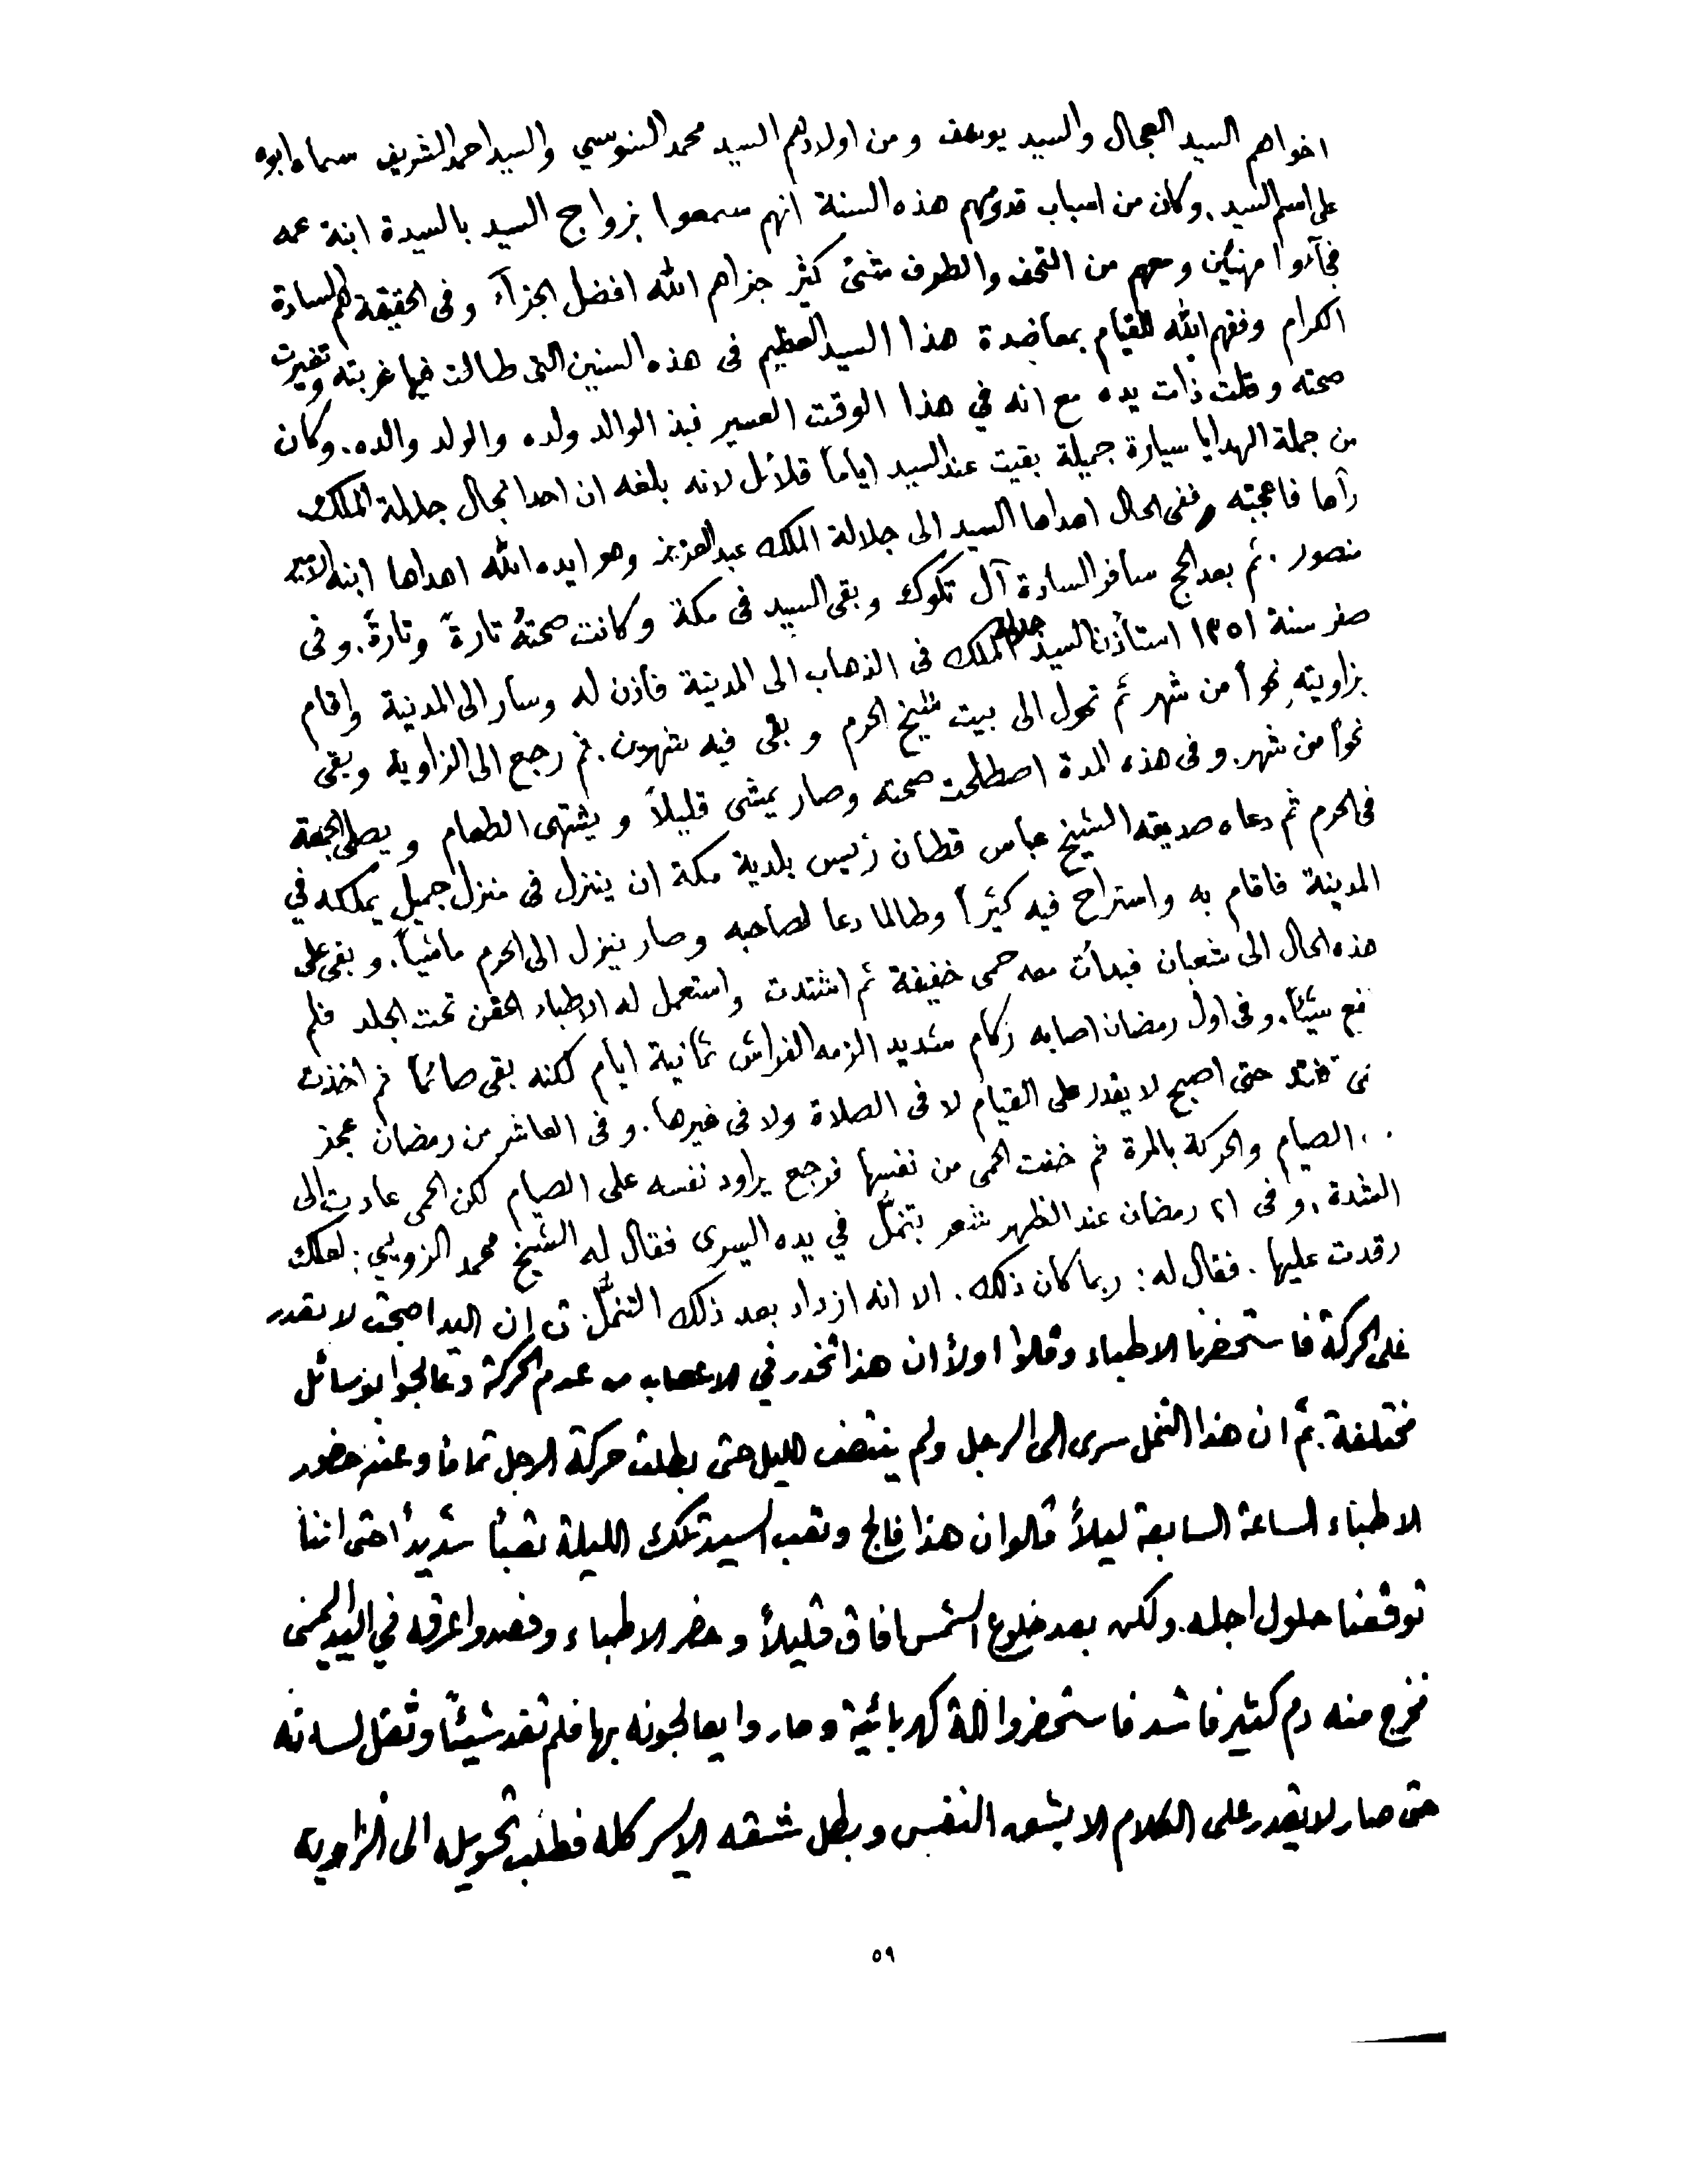 اخواهم السيد العجال والسيد يوسف ومن اولادهم السيد محمد السنوسي والسيد احمد الشريف سماه ابوه
على اسم السيد. وكان من اسباب قدومهم هذه السنة انهم سمعوا بزواج السيد بالسيدة ابنة عمه
فجآءوا مهنئين ومعهم من التحف والطرف شئ كثير جزاهم الله افضل الجزآء وفى الحقيقة هم السادة
الكرام وفقهم الله للقيام بمعاضدة هذا السيد العظيم فى هذه السنين التى طالت فيها غربته وتغيرت
صحته وقلت ذات يده مع انه في هذا الوقت العسير نبذ الوالد ولده والولد والده. وكان
من جملة الهدايا سيارة جميلة بقيت عند السيد اياماً قلائل لانه بلغه ان احد انجال جلالة الملك
رآها فاعجبته ففى الحال اهداها السيد الى جلالة الملك عبد العزيز وهو ايده الله اهداها ابنه الامير
منصور. ثم بعد الحج سافر السادة آل تكوك وبقى السيد فى مكة وكانت صحتهُ تارةً وتارةً. وفى
صفر سنة ١٣٥١ استأذن السيد جلالة الملك فى الذهاب الى المدينة فأذن له وسار الى المدينة واقام
بزاويتهِ نحواً من شهر ثم تحول الى بيت شيخ الحرم وبقى فيه شهرين. ثم رجع الى الزاوية وبقى
نحواً من شهر. وفى هذه المدة اصطلحت صحته وصار يمشى قليلاً ويشتهى الطعام ويصلى الجمعة
فى الحرم ثم دعاه صديقه الشيخ عباس قطان رئيس بلدية مكة ان ينزل فى منزل جميل يملكه في
المدينة فاقام به واستراح فيه كثيراً وطالما دعا لصاحبه وصار ينزل الى الحرم ماشياً. وبقى على
هذه الحال الى شعبان فبدأت معه حمى خفيفة ثم اشتدت واستعمل له الاطباء الحقن تحت الجلد فلم
شيئاً. وفى اول رمضان اصابه زكام شديد الزمه الفراش ثمانية ايام لكنه بقى صائماً ثم اخذت
حتى اصبح لا يقدر على القيام لا فى الصلاة ولا فى غيرها. وفى العاشر من رمضان عجز
الصيام والحركة بالمرة ثم خفت الحمى من نفسها فرجع يراود نفسه على الصيام لكن الحمى عادت الى
الشدة. وفى ٢١ رمضان عند الظهر شعر بتنمّل في يده اليسرى فقال له الشيخ محمد الزويي: لعلك
رقدت عليها. فقال له: ربما كان ذلك. الا انه ازداد بعد ذلك التنمّل ان اليد اصبحت لا تقدر
على الحركة فاستحضرنا الاطباء وقالوا اولاً ان هذا تخدر في الاعصاب من عدم الحركة وعالجوا بوسائل
مختلفة. ثم ان هذا التنمل سرى الى الرجل ولم ينتصف الليل حتى بطلت حركة الرجل تماماً وعند حضور
الاطباء الساعة السابعة ليلاً قالوا ان هذا فالج وتعب السيد تلك الليلة تعباً شديداً حتى اننا
توقعنا حلول اجله. ولكن بعد طلوع الشمس افاق قليلاً وحضر الاطباء وفصدوا عرقه في اليد اليمنى
فخرج منه دم كثير فاستحضروا آلة كهربائية وصاروا يعالجونه بها فلم تفد شيئاً وثقل لسانه
حتى صار لا يقدر على الكلام الا بشق النفس وبطل شقه الايسر كله فطلب تحويله الى الزاوية
٥٩